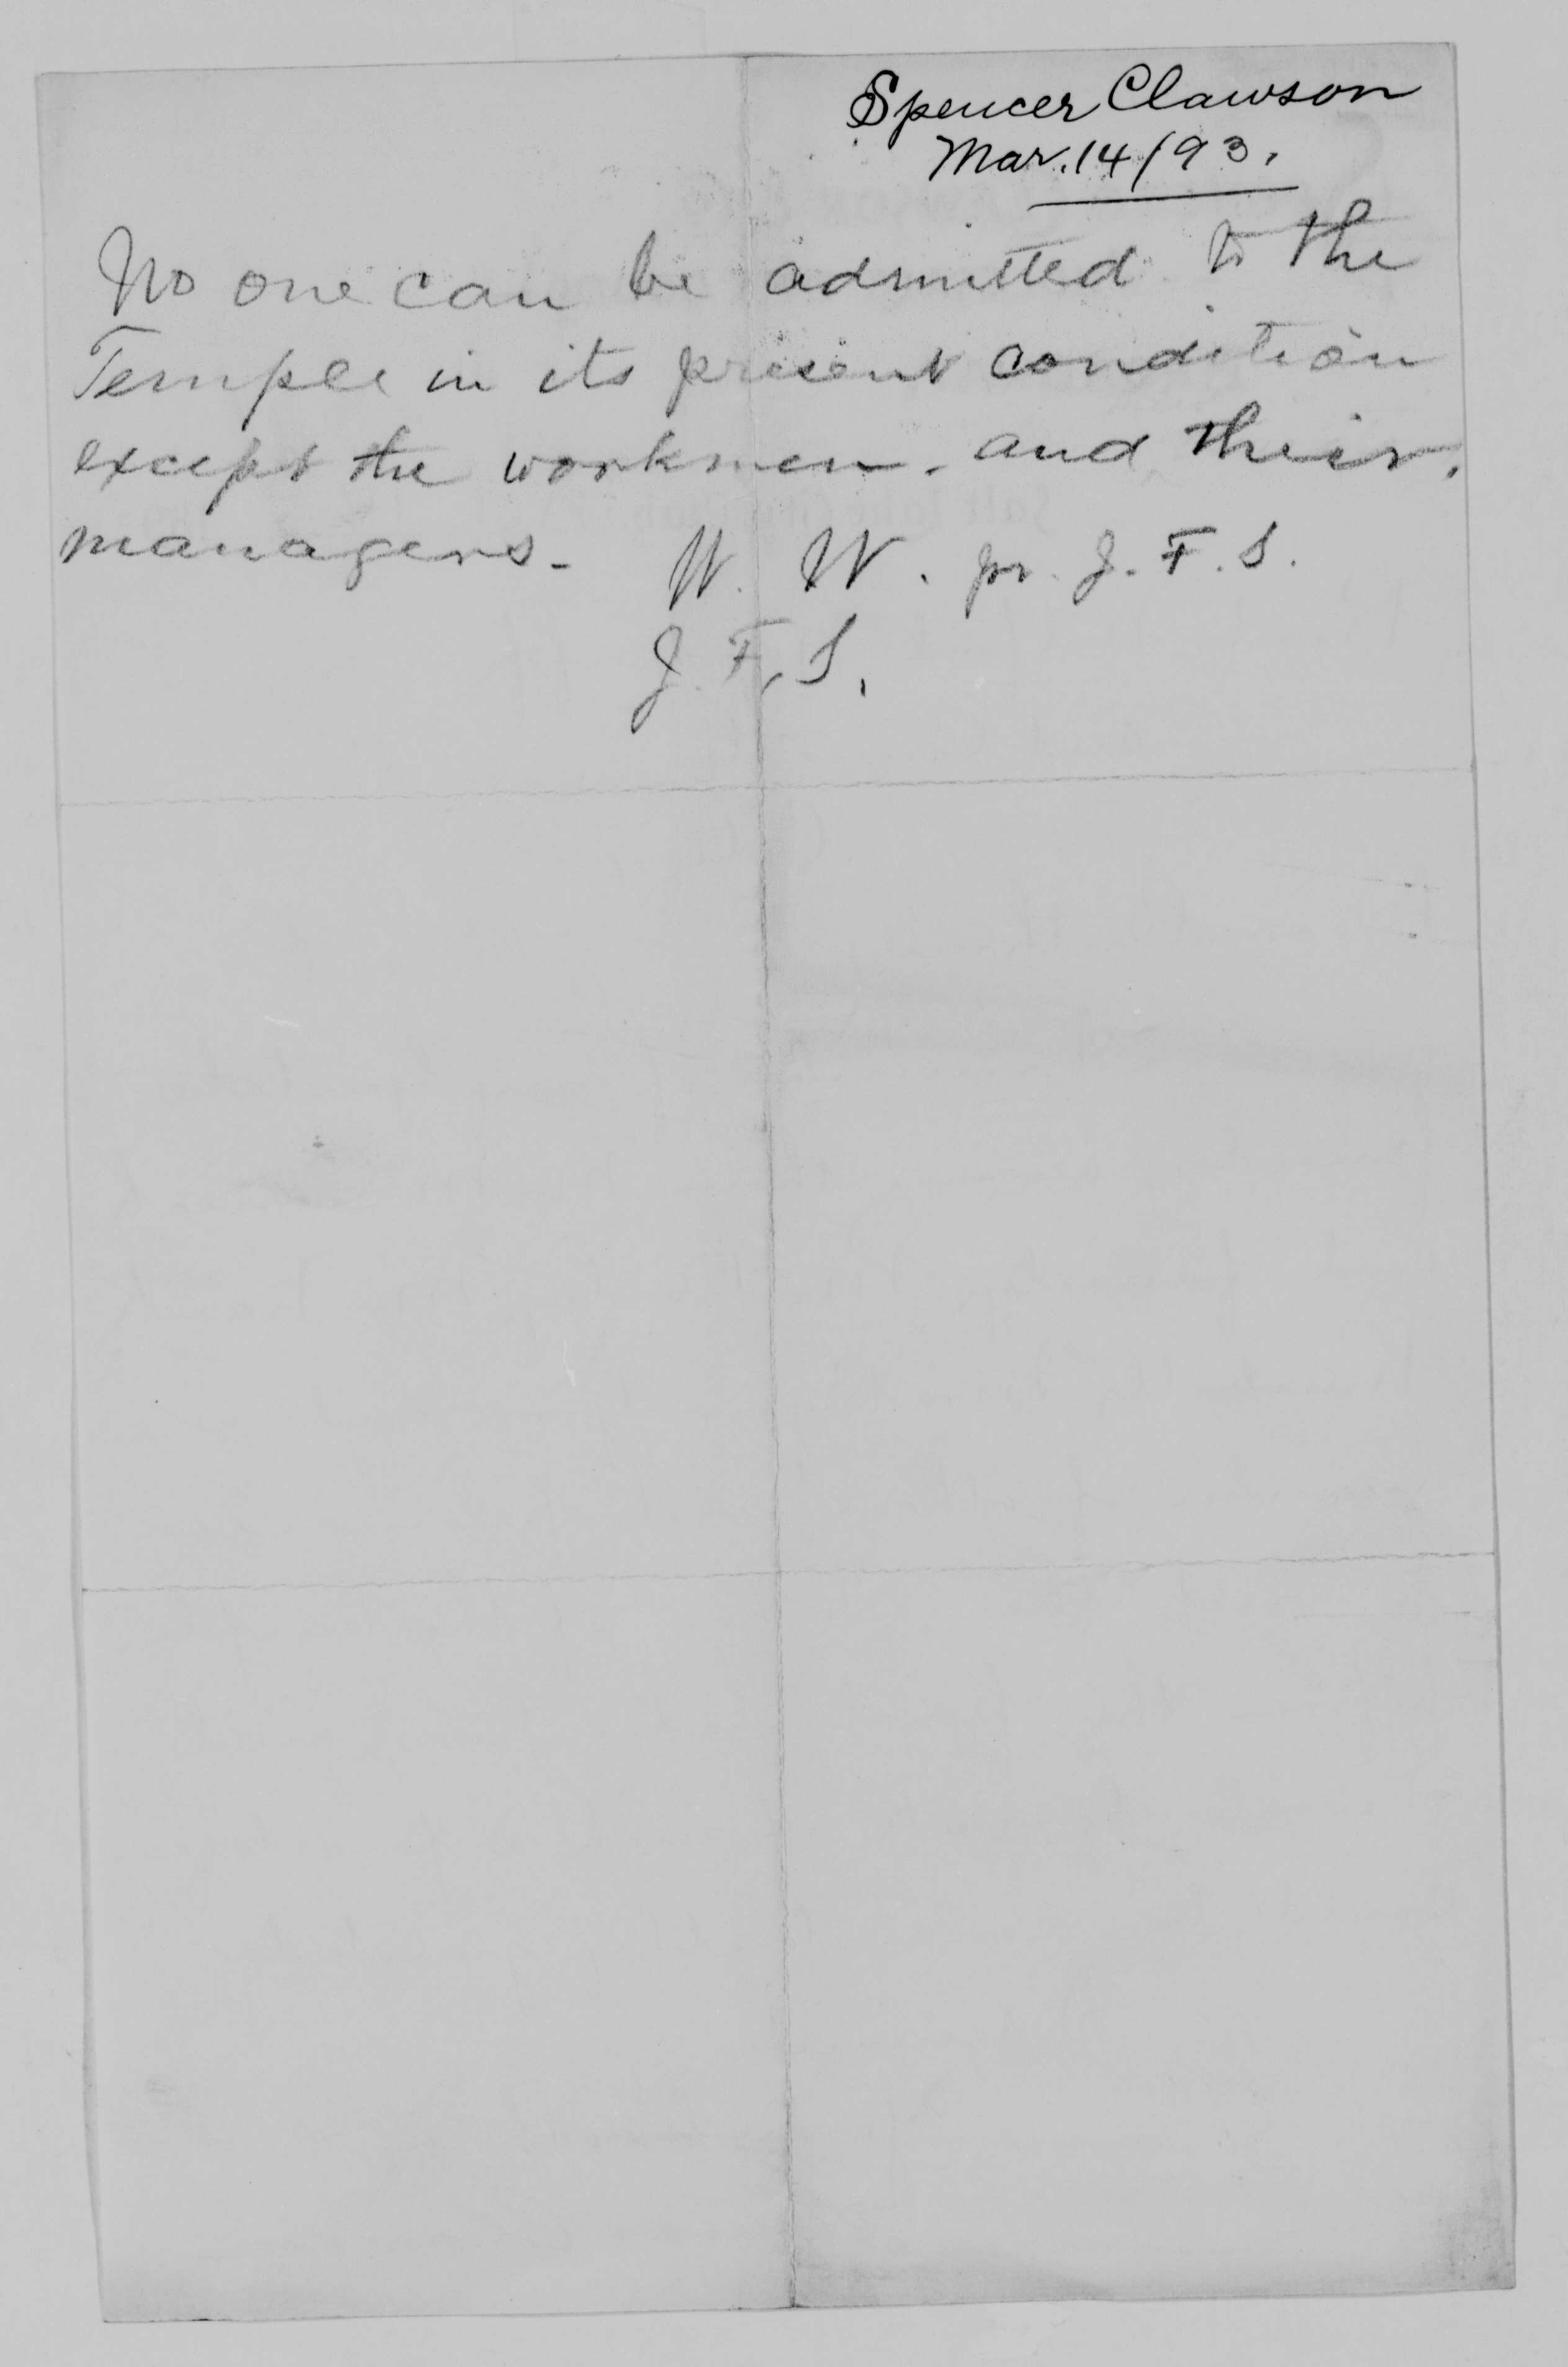 Spencer Clawson
Mar. 14/93.
No one can be admitted to the
Temple in its present condition
except the workmen. and their.
managers.
W. W. pr. J. F. S.
J. F. S.